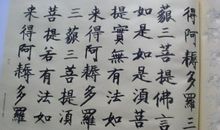 得阿耨多羅三
藐三菩提佛言
如是如是須菩
提實無有法如
來得阿耨多羅
三藐三菩提須
菩提若有法如
來得阿耨多羅三